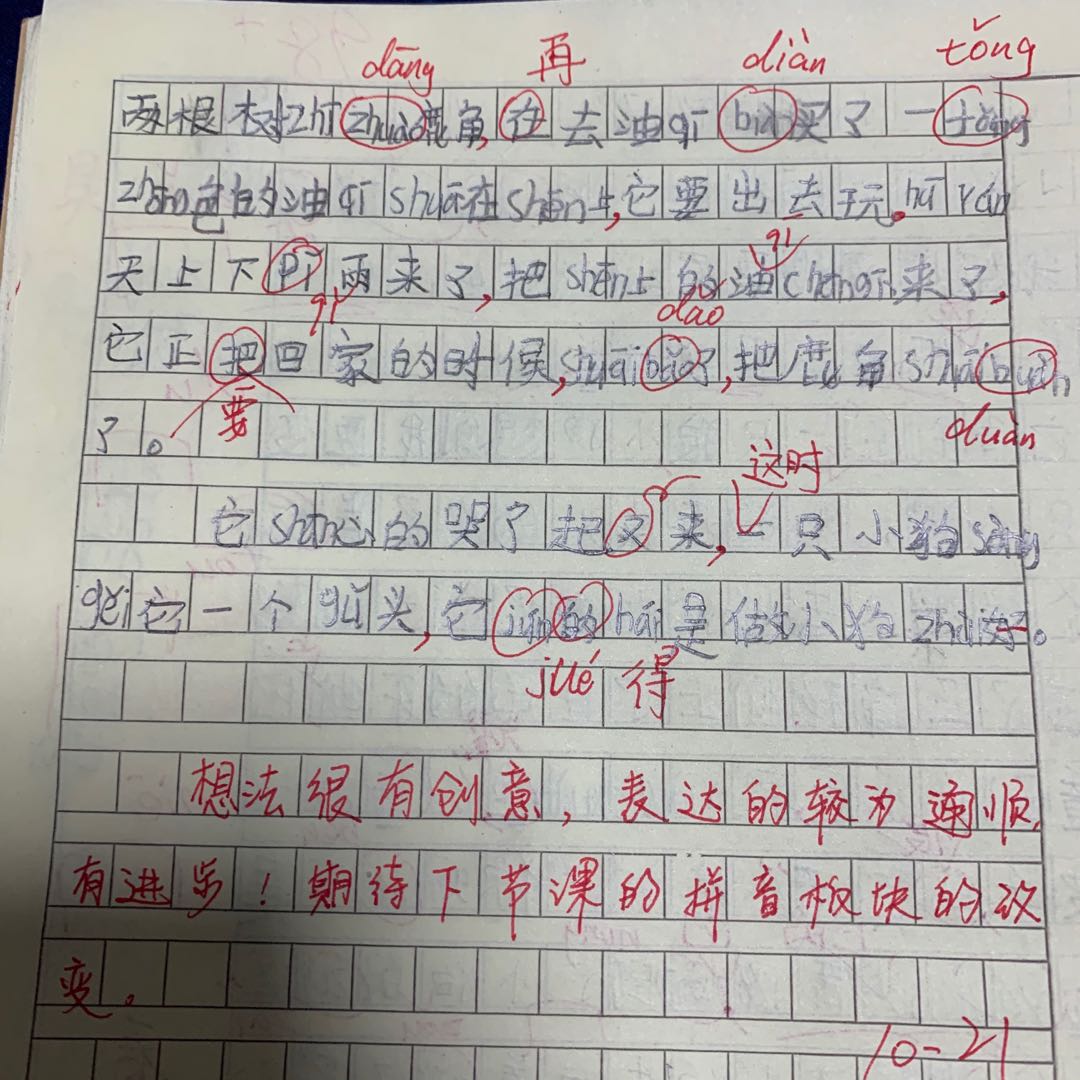 dāng 再 diàn tǒng
两根树zhī zhuāo鹿角,在去油qī biàn买了一tǒng
zhōng色的油qī shuā在shēn上,它要出去玩。hū rán
天上下qǐ雨来了,把shēn上的油qī chōng来了,
dǎo
它正把回家的时候,shuāi bǎo了,把鹿角shuāi buàn
了。 要 duàn
这时
它shāng心的哭了起又来,一只小狗sòng
gěi它一个gǔ头,它juě的hái是做小狗zhuì好。
jué 得
想法很有创意,表达的较为通顺,
有进步!期待下节课的拼音板块的改
变。
10-21